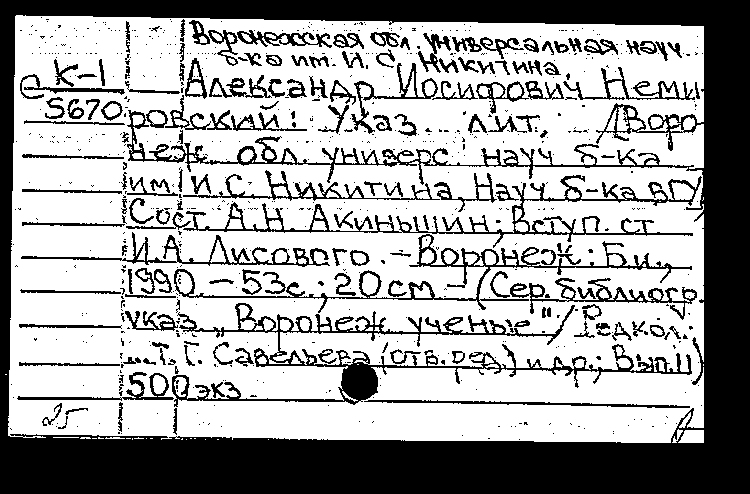 Воронежская обл. универсальная науч
б-ка им. И. С. Никитина.
е К-1
5670
Александр Иосифович Неми-
ровский: Указ. лит. / [Воро-
неж. обл. универс. науч б-ка
им. И.С. Никитина, Науч б-ка ВГУ;
Сост. А.Н. Акиньшин; Вступ. ст.
И.А. Лисового. - Воронеж: Б.и.,
1990. - 53с.; 20 см - (Сер. библиогр.
указ. „Воронеж ученые" / Редкол.:
... Т. Г. Савельева (отв. ред.) и др.; Вып. 11)
500 экз.
25